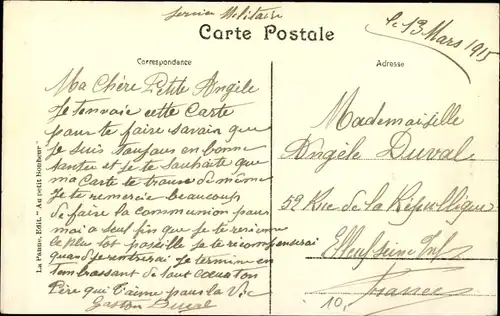 Service Militaire
Carte Postale
le 13 Mars 1915
Correspondance
Ma Chère Petite Angèle
Je t'envoie cette Carte
pour te faire savoir que
je suis toujours en bonne
santer et je te souhaite que
ma Carte te trouve de même
Je te remercie beaucoup
de faire la communion pour
moi a seul fin que je te revienne
le plus tot possible je te recompenserai
quand je rentrerai Je termine en
t'embrassant de tout coeur ton
Père qui t'aime pour la Vie
Gaston Duval
Adresse
Mademoiselle
Angèle Duval
59 Rue de la République
Elbeuf Seine Inf
France
10,
La Panne, Edit. "Au petit Bonheur"